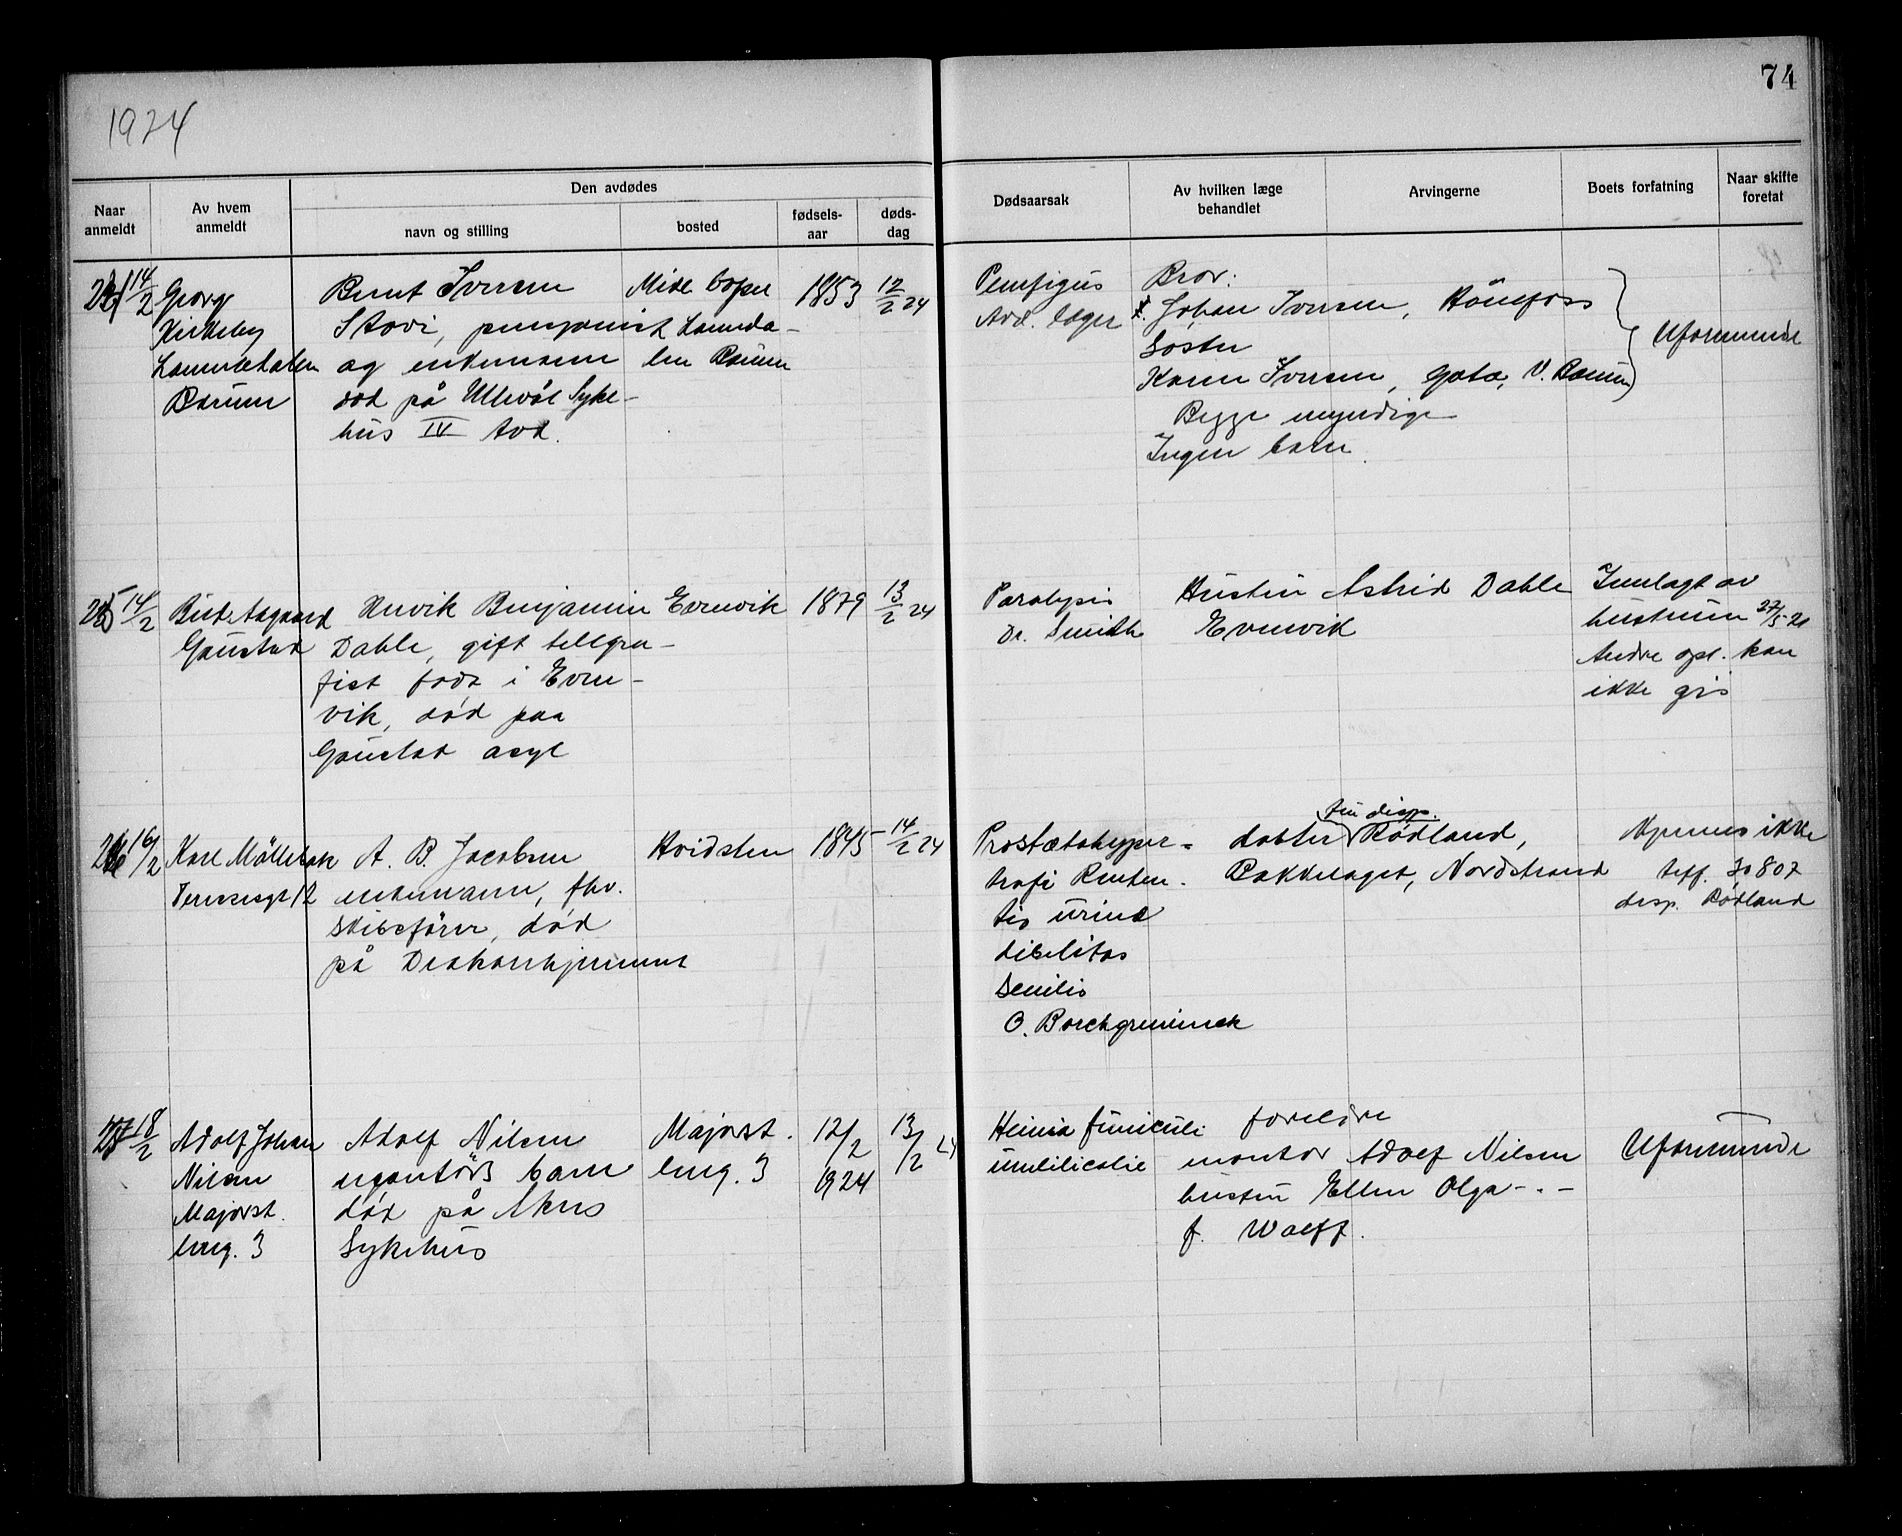 1924
74
Den avdødes
Naar anmeldt
Av hvem anmeldt
navn og stilling
bosted
fødsels-aar
døds-dag
Dødsaarsak
Av hvilken læge behandlet
Arvingerne
Boets forfatning
Naar skifte foretat
14/2
George
Kirkeby
Bærum
Bernt Iversen
Stovi, pensjonist
og enkemann
død på Ullevål Syke-
hus IV Avd.
len Bærum
1853
12/2 24
Pemfigus
Avd. læger
Bror:
Johan Iversen, Hönefoss
Søster
Karen Iversen, Gata, V. Bærum
Begge myndige
Ingen barn
Uformuende
25 14/2
Aagaard
Gaustad
Henrik Benjamin
Dahle, gift telegra-
fist født i Even-
vik, død paa
Gaustad asyl
Evenvik
1879
13/2 24
Paralysis
Dr. Smith
Hustru Astrid Dahle
Evenvik
Innlagt av
hustruen 27/5-21
Andre opl. kan
ikke gis
26 16/2
Karl Möllebak
A. B. Jacobsen
enkemann, fhv.
skibsfører, død
på Diakonhjemmet
Hvidsten
1845
14/2 24
Prostatahyper-
trofi Renten-
tio urinæ
debilitas
senilis
O. Borchgrevinck
datter fru disp. Rødland,
Bakkelaget, Nordstrand
Kjennes ikke
telf. 30807
disp. Rødland
27 18/2
Adolf Johan
Nilsen
Majorst.
veg. 3
Adolf Nilsen
død på Akers
Sykehus
Majorst.
veg. 3
12/2
1924
13/2 24
Hernia funiculi
umbilicalis
foreldre
montør Adolf Nilsen
hustru Ellen Olga -"-
f. Wolff.
Uformuende